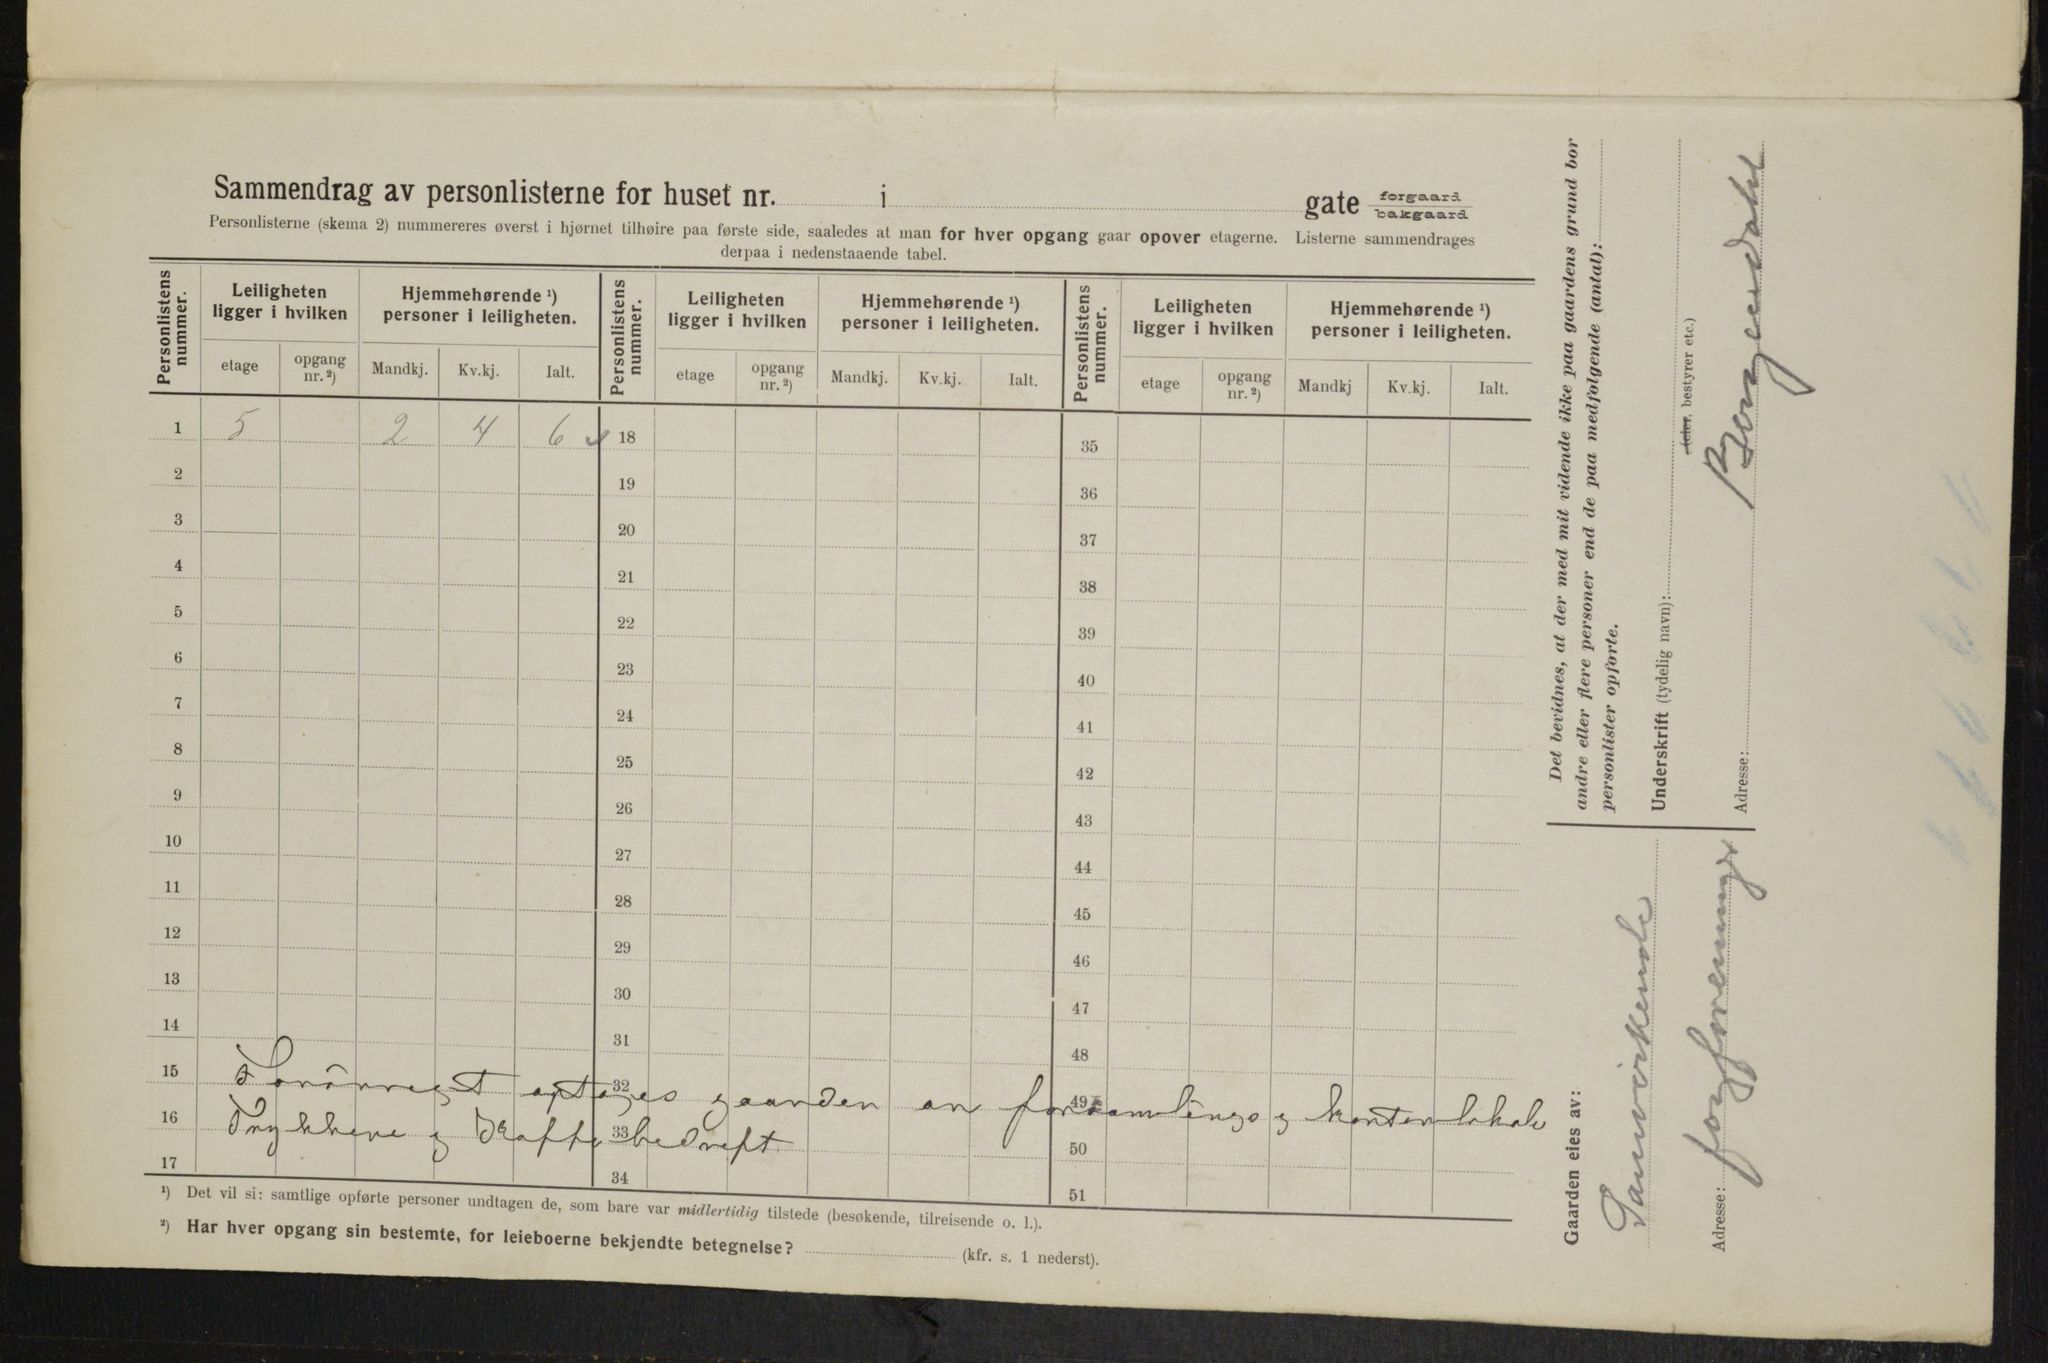 Sammendrag av personlisterne for huset nr. i gate forgaard bakgaard
Personlisterne (skema 2) nummereres øverst i hjørnet tilhøire paa første side, saaledes at man for hver opgang gaar opover etagerne. Listerne sammendrages
derpaa i nedenstaaende tabel.
Personlistens nummer. Leiligheten ligger i hvilken Hjemmehørende ¹) personer i leiligheten. Personlistens nummer. Leiligheten ligger i hvilken Hjemmehørende ¹) personer i leiligheten. Personlistens nummer. Leiligheten ligger i hvilken Hjemmehørende ¹) personer i leiligheten.
etage opgang nr. ²) Mandkj. Kv.kj. Ialt. etage opgang nr. ²) Mandkj. Kv.kj. Ialt. etage opgang nr. ²) Mandkj Kv.kj. Ialt.
1 5 2 4 6 18 35
2 19 36
3 20 37
4 21 38
5 22 39
6 23 40
7 24 41
8 25 42
9 26 43
10 27 44
11 28 45
12 29 46
13 30 47
14 31 48
15 32 49
Forøvregt optages gaarden an forsamlings og kontorlokale
16 33 50
Trykkere og Kaffebedreft
17 34 51
¹) Det vil si: samtlige opførte personer undtagen de, som bare var midlertidig tilstede (besøkende, tilreisende o. l.).
²) Har hver opgang sin bestemte, for leieboerne bekjendte betegnelse? (kfr. s. 1 nederst).
Det bevidnes, at der med mit vidende ikke paa gaardens grund bor
andre eller flere personer end de paa medfølgende (antal):
personlister opførte.
Underskrift (tydelig navn):
(eier, bestyrer etc.)
Adresse:
Gaarden eies av:
Samvirkende
Adresse:
fagforeninger